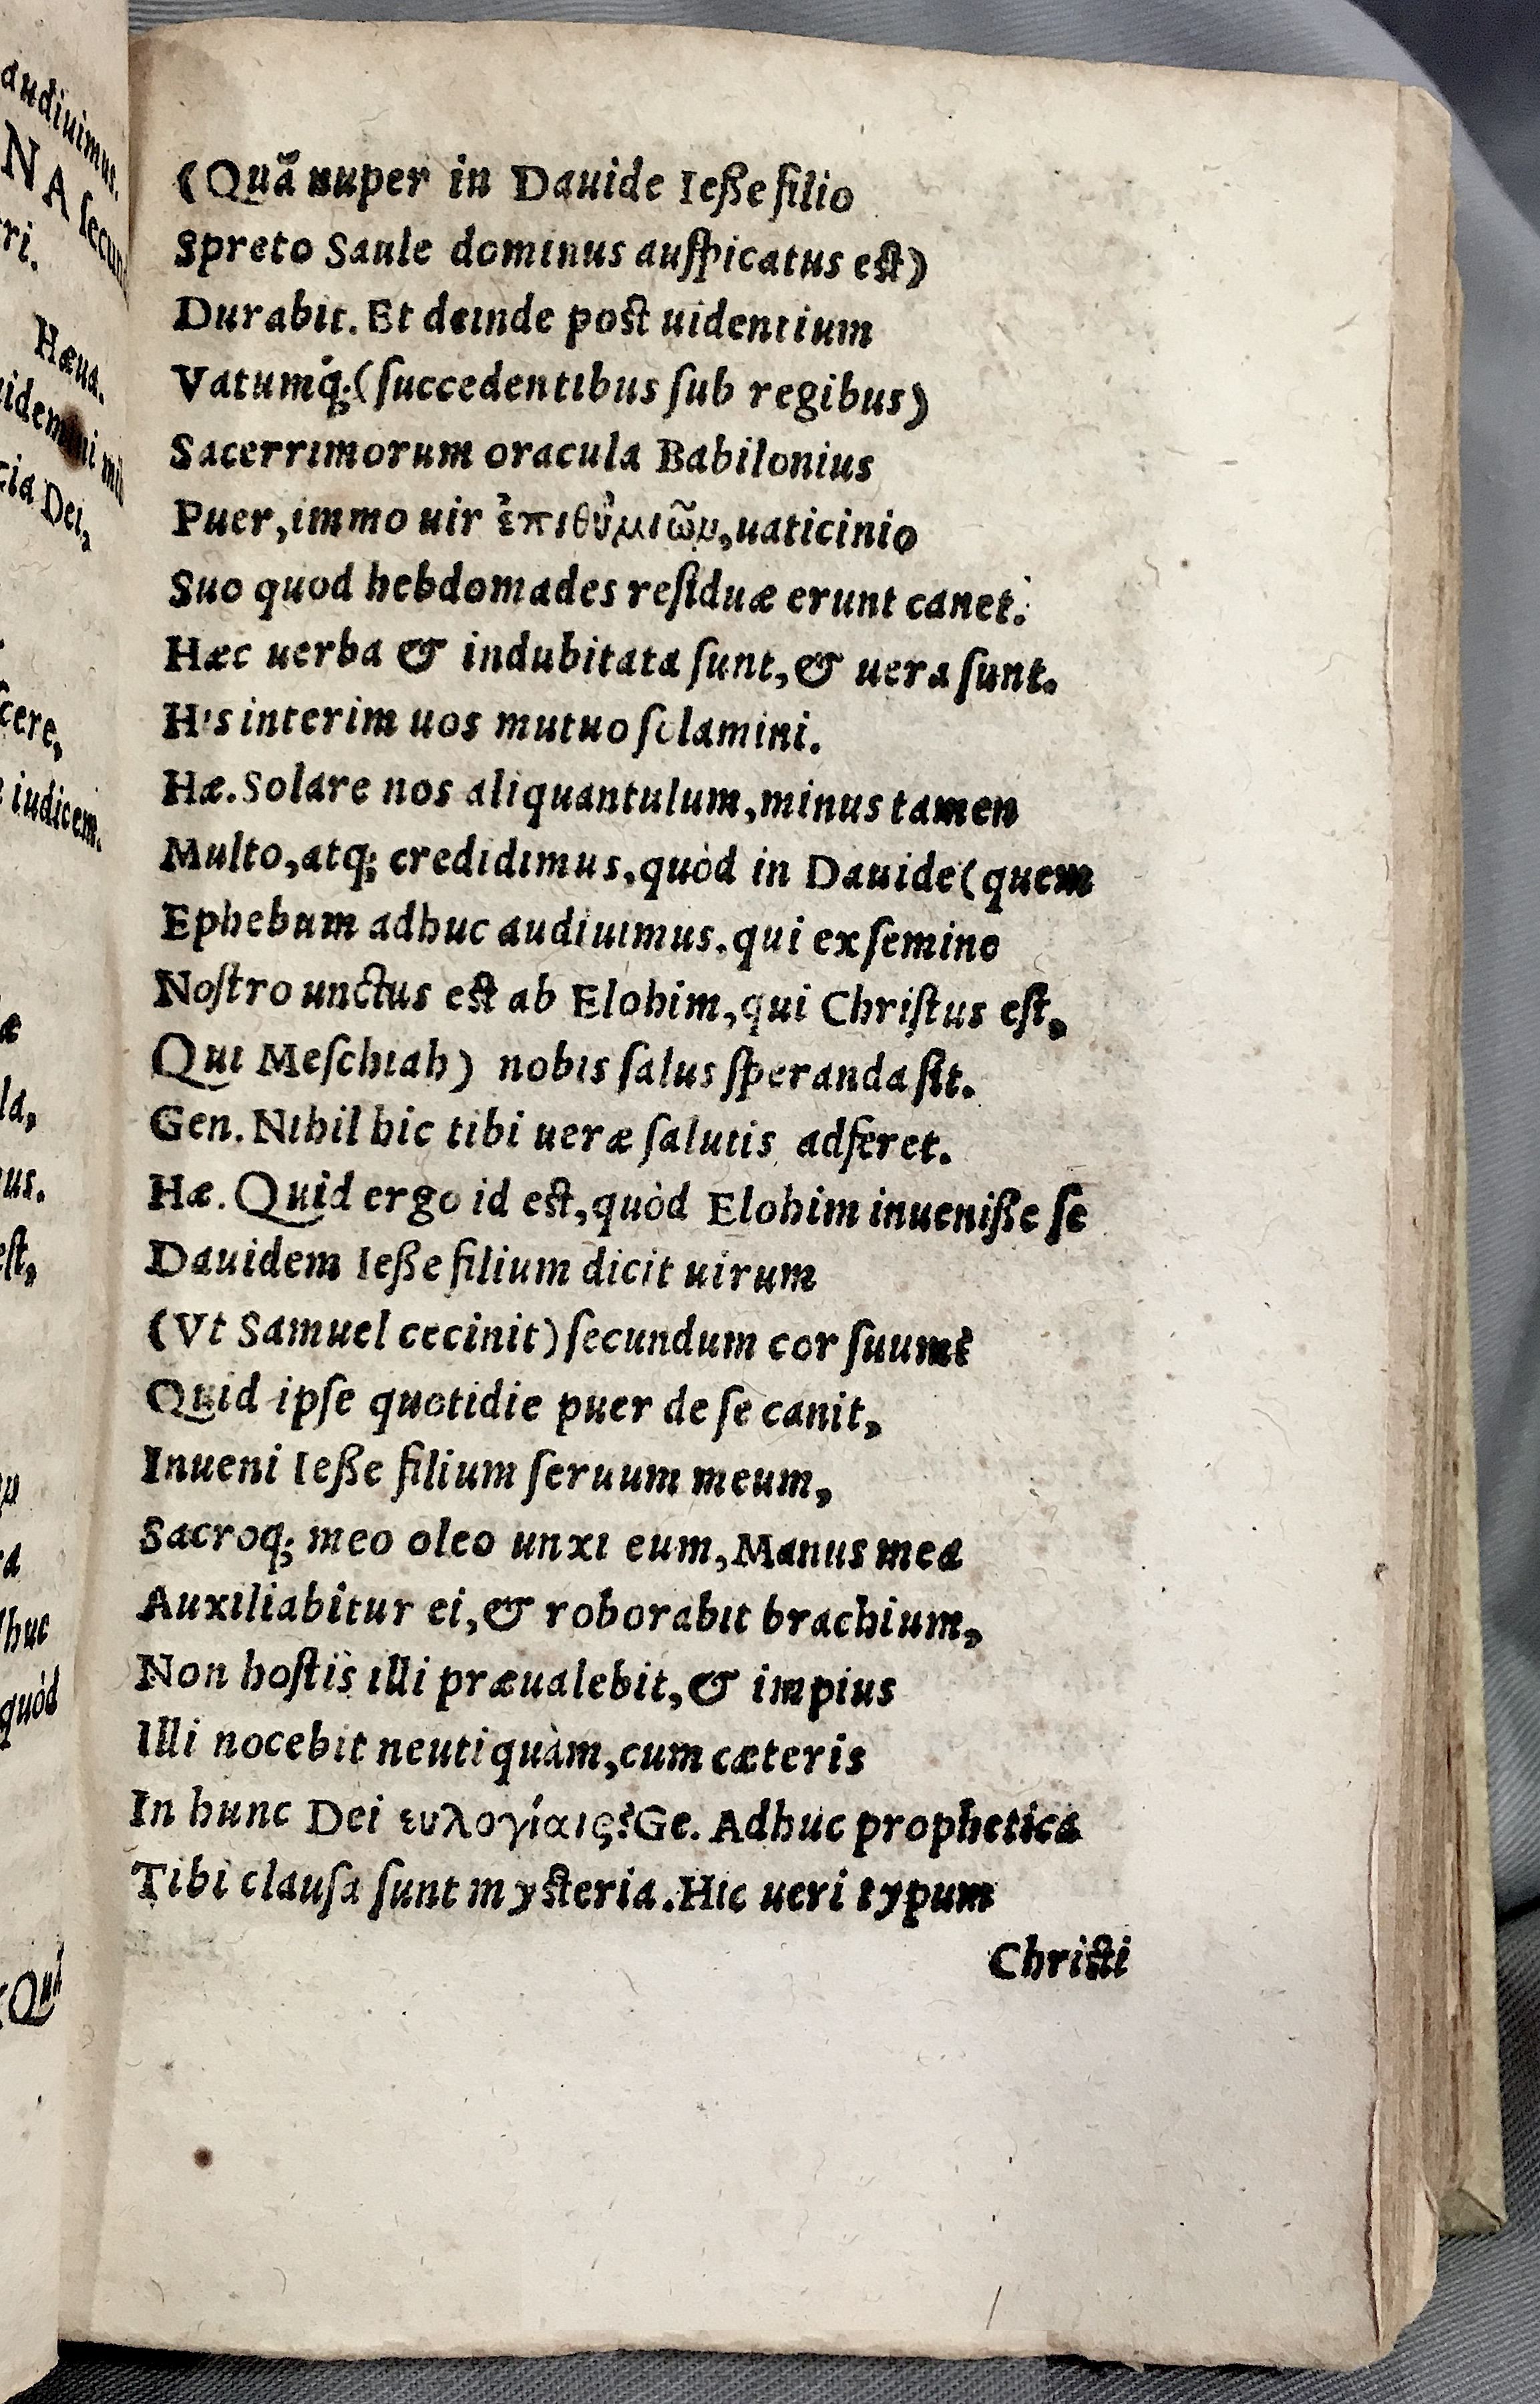 audiuimus.
NA secun
ri.
Hæua.
cia Dei,
cere,
iudicem.
æ
la,
us.
est,
huc
quòd
(Quã
(Quã nuper in Dauide Ieſſe filio
Spreto Saule dominus auſpicatus eſt)
Durabit. Et deinde poſt uidentium
Vatumq́;(ſuccedentibus ſub regibus)
Sacerrimorum oracula Babilonius
Puer, immo uir ἐπιθὐμιω̃ν, uaticinio
Suo quod hebdomades reſiduæ erunt canet:
Hæc uerba & indubitata ſunt, & uera ſunt.
His interim uos mutuo ſolamini.
Hæ. Solare nos aliquantulum, minus tamen
Multo, atq; credidimus, quòd in Dauide (quem
Ephebum adhuc audiuimus, qui ex ſemine
Noſtro unctus eſt ab Elohim, qui Chriſtus eſt,
Qui Meſchiah) nobis ſalus ſperanda ſit.
Gen. Nihil hic tibi ueræ ſalutis adferet.
Hæ. Quid ergo id eſt, quòd Elohim inueniſſe ſe
Dauidem Ieſſe filium dicit uirum
(Vt Samuel cecinit) ſecundum cor ſuum?
Quid ipſe quotidie puer de ſe canit,
Inueni Ieſſe filium ſeruum meum,
Sacroq; meo oleo unxi eum, Manus mea
Auxiliabitur ei, & roborabit brachium,
Non hoſtis illi præualebit, & impius
Illi nocebit neutiquàm, cum cæteris
In hunc Dei ευλογίαις? Ge. Adhuc prophetica
Tibi clauſa ſunt myſteria. Hic ueri typum
Chriſti